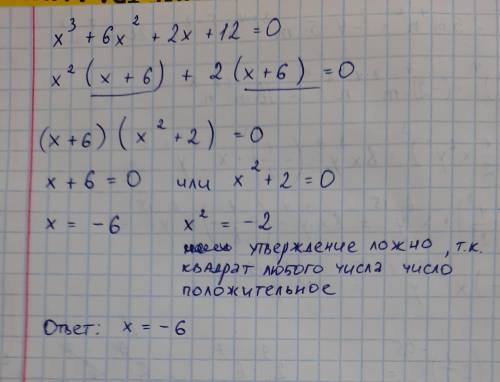 x³ + 6x² + 2x + 12 = 0
x² (x + 6) + 2 (x + 6) = 0
(x + 6) (x² + 2) = 0
x + 6 = 0 или x² + 2 = 0
x = -6 x² = -2
утверждение ложно, т.к.
квадрат любого числа число
положительное
Ответ: x = -6